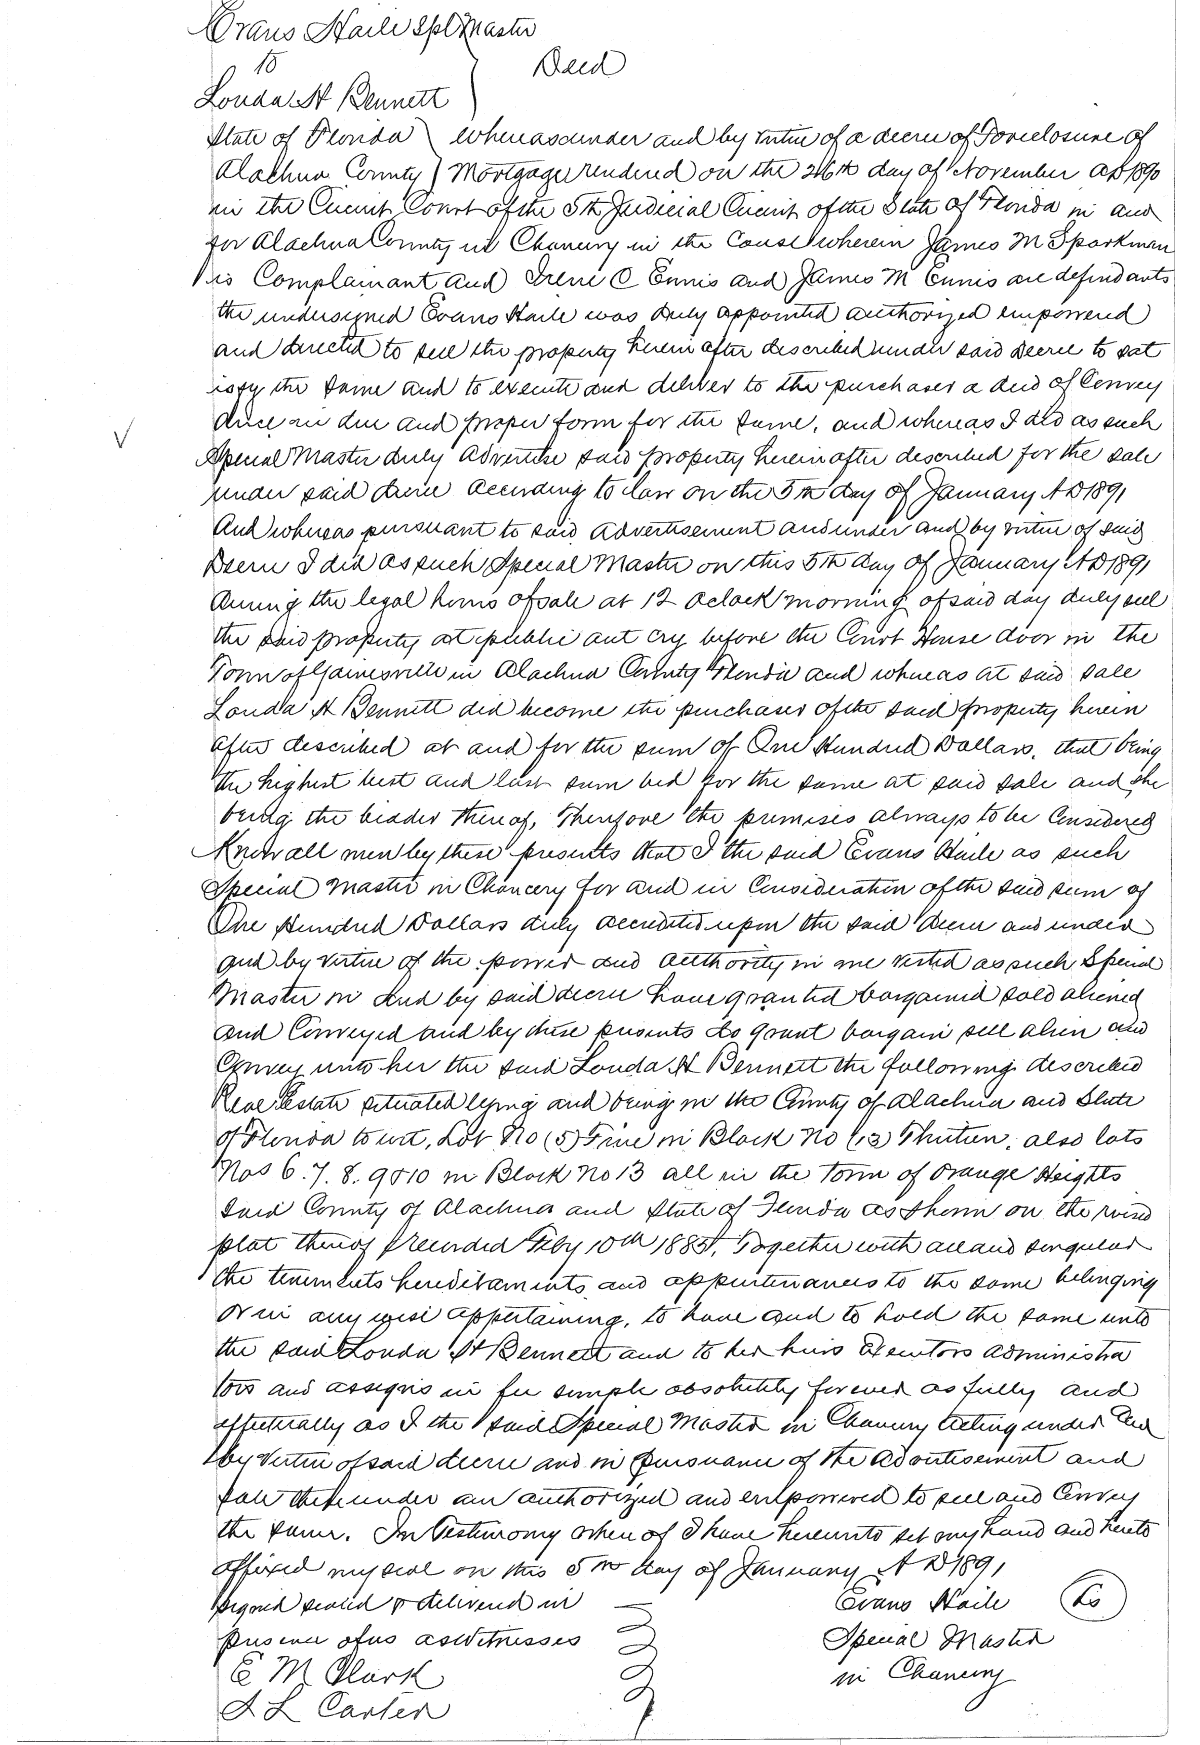 Evans Haile Spl Master
to
Deed
Louda H Bennett
State of Florida Whereas under and by virtue of a decree of Foreclosure of
Alachua County Mortgage rendered on the 26th day of November AD 1890
in the Circuit Court of the 5th Judicial Circuit of the State of Florida in and
for Alachua County in Chancery in the Cause wherein James M Sparkman
is Complainant and Irene C Ennis and James M Ennis are defendants
the undersigned Evans Haile was duly appointed authorized empowered
and directed to sell the property herein after described under said Decree to sat
isfy the same and to execute and deliver to the purchaser a deed of Convey
ance in due and proper form for the same, and whereas I did as such
Special Master duly Advertise said property herein after described for the sale
under said decree according to law on the 5th day of January A D 1891
And whereas pursuant to said Advertisement and under and by virtue of said
Decree I did as such Special Master on this 5th day of January A D 1891
during the legal hours of sale at 12 oclock morning of said day duly sell
the said property at public out cry before the Court House door in the
Town of Gainesville in Alachua County Florida and whereas at said sale
Louda H Bennett did become the purchaser of the said property herein
after described at and for the sum of One Hundred Dollars, that being
the highest best and last sum bid for the same at said sale and she
being the bidder thereof, Therefore the premises always to be Considered
Know all men by these presents that I the said Evans Haile as such
Special Master in Chancery for and in Consideration of the said sum of
One Hundred Dollars duly accredited upon the said Decree and under
and by virtue of the power and authority in me vested as such Special
Master in and by said decree have granted bargained sold aliened
and Conveyed and by these presents do grant bargain sell alien and
Convey unto her the said Louda H Bennett the following described
Real Estate situated lying and being in the County of Alachua and State
of Florida to wit, Lot No (5) Five in Block No (13) Thirteen, also lots
Nos 6. 7. 8. 9 & 10 in Block No 13 all in the Town of Orange Heights
Said County of Alachua and State of Florida as shown on the revised
plat thereof recorded Feby 10th 1885, Together with all and singular
the tenements hereditaments and appurtenances to the same belonging
or in any wise appertaining, to have and to hold the same unto
the said Louda H Bennett and to her heirs Executors administra
tors and assigns in fee simple absolutely forever as fully and
effectually as I the said Special Master in Chancery Acting under and
by virtue of said decree and in pursuance of the Advertisement and
sale thereunder am authorized and empowered to sell and Convey
the same. In Testimony whereof I have hereunto set my hand and hereto
affixed my seal on this 5th day of January A D 1891
Signed sealed & delivered in Evans Haile Ls
presence of us as Witnesses Special Master
E M Clark in Chancery
J L Carter